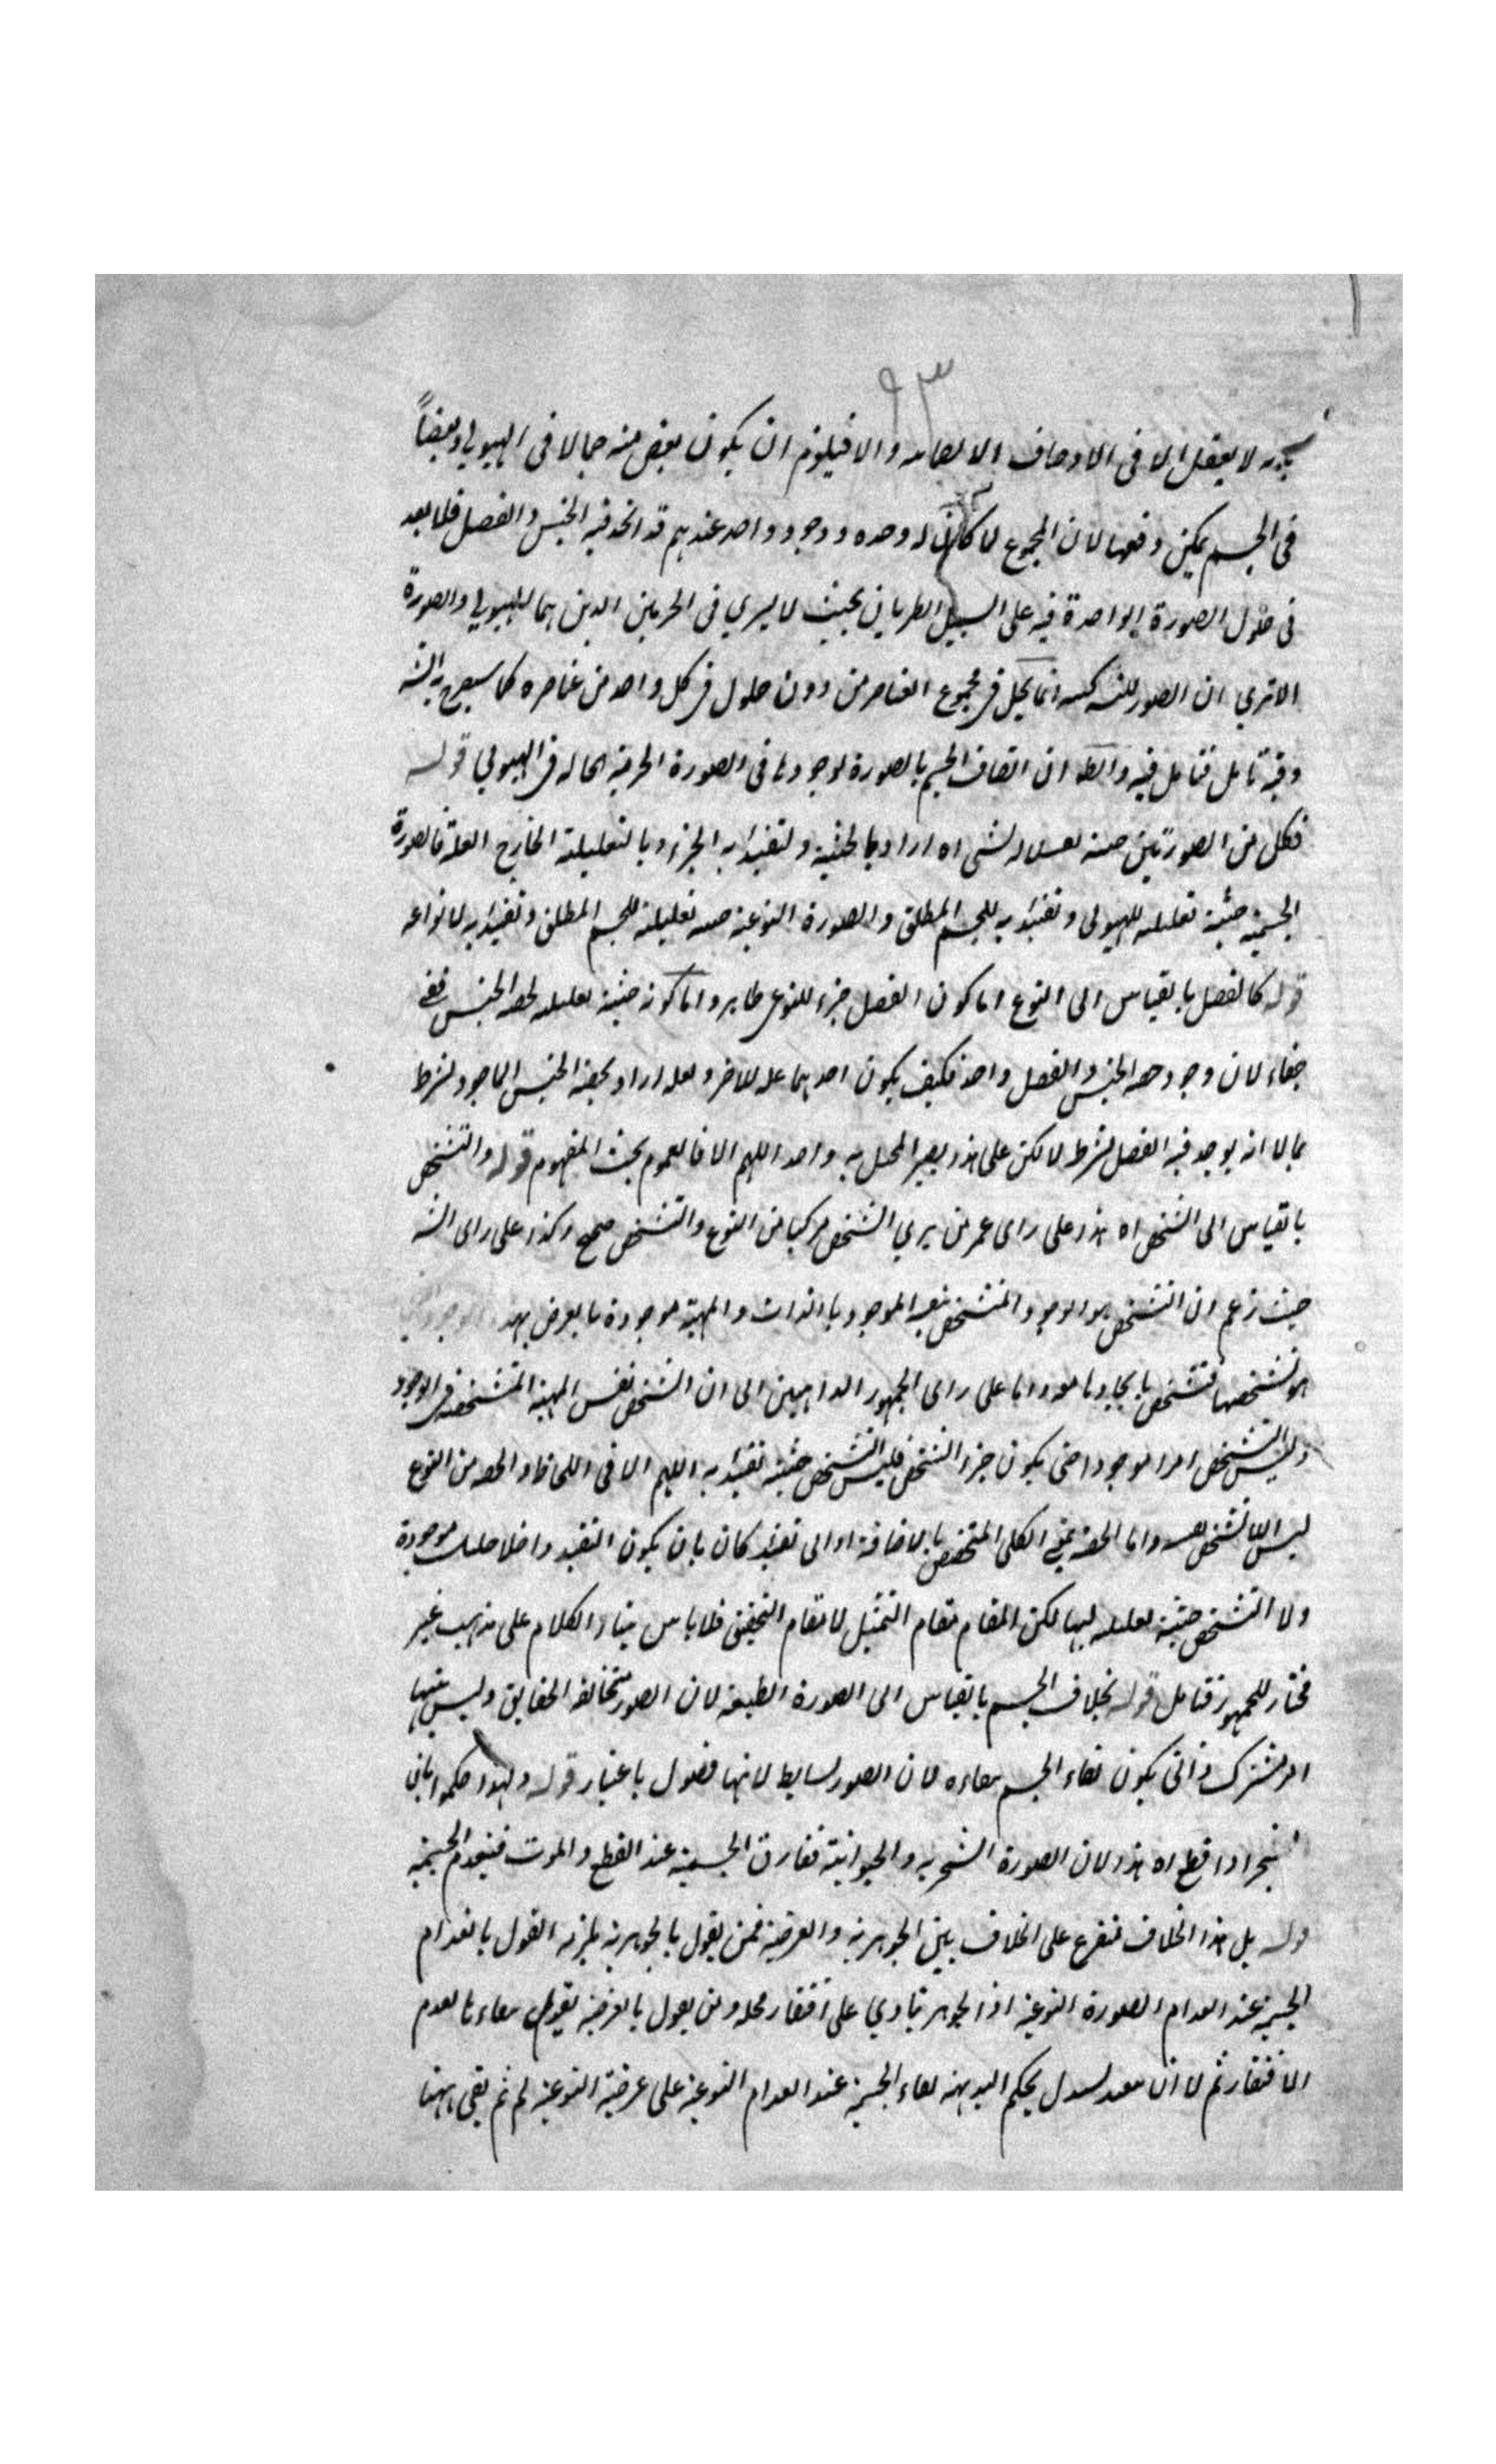 ٩٣
لا يعقل الا فى الاوصاف الانضمامية والا فيلزم ان يكون بعض منه حالا فى الهيولى وبعضاً
فى الجسم يمكن دفعها لان المجموع لما كان له وحدة ووجود واحد عندهم قد اتحد فيه الجنس والفصل فلا بعد
فى حلول الصورة الواحدة فيه على السبيل الطريان بحيث لا يسرى فى الجزئين الذين هما الهيولى والصورة
الا ترى ان الصور انما تحل فى مجموع العناصر من دون حلول فى كل واحد من عناصره كما سيصرح به الش
وفيه تامل فتامل فيه والظ ان اتصاف الجسم بالصورة لوجودها فى الصورة الجرمية الحالة فى الهيولى قوله
فكل من الصورتين لشى اه اراد بالحيثية التقييدية الجزء وبالتعليلية الخارج العلة فالصورة
الجسمية حيثية تعليلية للهيولى وتقييدية للجسم المطلق والصورة النوعية حيثية تعليلية للجسم المطلق وتقييدية لانواعه
قوله كالفصل بالقياس الى النوع اما كون الفصل جزء للنوع ظاهر واما كونه حيثية تعليلية لحصة الجنس ففيه
خفاء لان وجود حصة الجنس والفصل واحد فكيف يكون احدهما علة للاخر ولعله اراد بحصة الجنس الماخوذ بشرط
لا انه يوجد فيه الفصل بشرط لا لكن على هذا يصير واحد اللهم الا فالعموم بحيث المفهوم قوله والتشخص
بالقياس الى الشخص اه هذا على راى من يرى الشخص مركبا من النوع والتشخص صحيح وكذا على راى الش
حيث زعم ان التشخص هو الوجود المتشخص الموجود بالذات والمهية موجودة بالعرض
هو تشخصها فتشخص واما على راى الجمهور الذاهبين الى ان الشخص نفس المهية المتشخصة فى الوجود
وليس التشخص امرا موجودا حتى يكون جزء الشخص فليس التشخص حيثية تقييدية اللهم الا فى اللحاظ والحصة من النوع
ليس الا الشخص واما الحصة بمعنى الكلى المتخصص بالاضافة او الى تقييد كان بان يكون التقييد داخلا موجودة
ولا التشخص حيثية تعليلية لها لكن المقام مقام التمثيل لا مقام التحقيق فلا باس بناء الكلام على مذهب غير
مختار للجمهور فتامل قوله بخلاف الجسم بالقياس الى الصورة الطبيعية لان الصور متخالفة الحقايق وليس بينها
امر مشترك ذاتى يكون بقاء الجسم ببقائه لان الصور بسايط لانها فصول باعتبار قوله ولهذا حكموا بان
الشجر اذا قطع اه هذا لان الصورة الشجرية والحيوانية تفارق الجسمية عند القطع والموت فينعدم الجسمية
قوله بل هذا الخلاف متفرع على الخلاف بين الجوهرية والعرضية فمن يقول بالجوهرية يلزمه القول بانعدام
الجسمية عند انعدام الصورة النوعية اذ الجوهر ينادى على افتقار محله ومن يقول بالعرضية يقول ببقاءها لعدم
الافتقار ثم لا ان بحكم البديهة بقاء الجسمية عند انعدام النوعية على عرضية النوعية لم ثم بقى ههنا